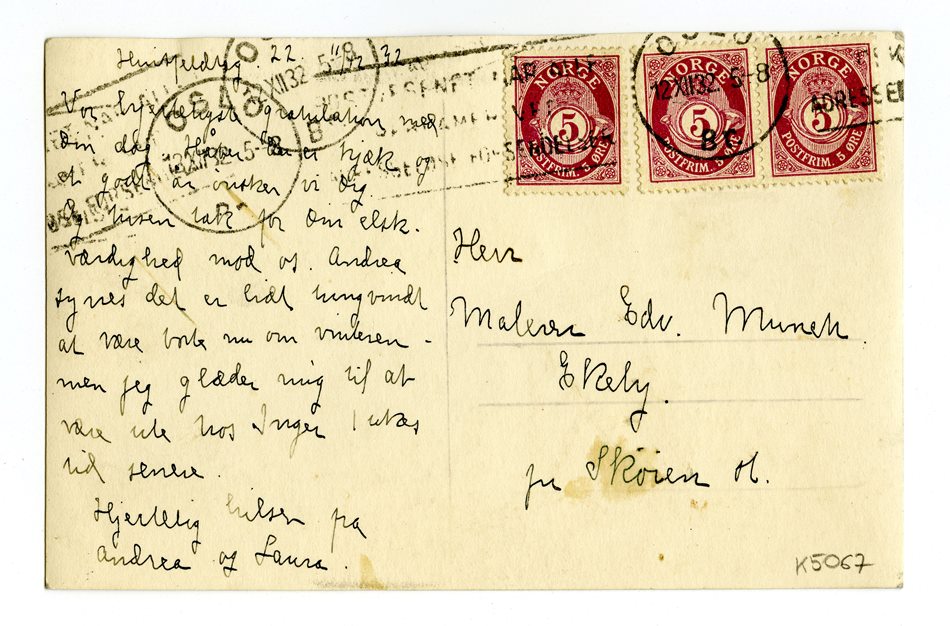 22 12/12 32
Vor hjerteligst gratulation med
Din dag. Håper Du er kjæk og
et godt år ønsker vi Dig
og tusen takk for Din elsk-
værdighed mod os. Andrea
synes det er lidt tungvindt
at være borte nu om vinteren -
men jeg glæder mig til at
være ute hos Inger 1 ukes
tid senere.
Hjertelig hilsen fra
Andrea og Laura.
NORGE
5
POSTFRIM. 5 ØRE
NORGE
5
POSTFRIM. 5 ØRE
NORGE
5
POSTFRIM. 5 ØRE
OSLO
12XII32. 5-8
Br.
ADRESSE
Herr
Maleren Edv. Munch
Ekely.
pr Skøien st.
K5067